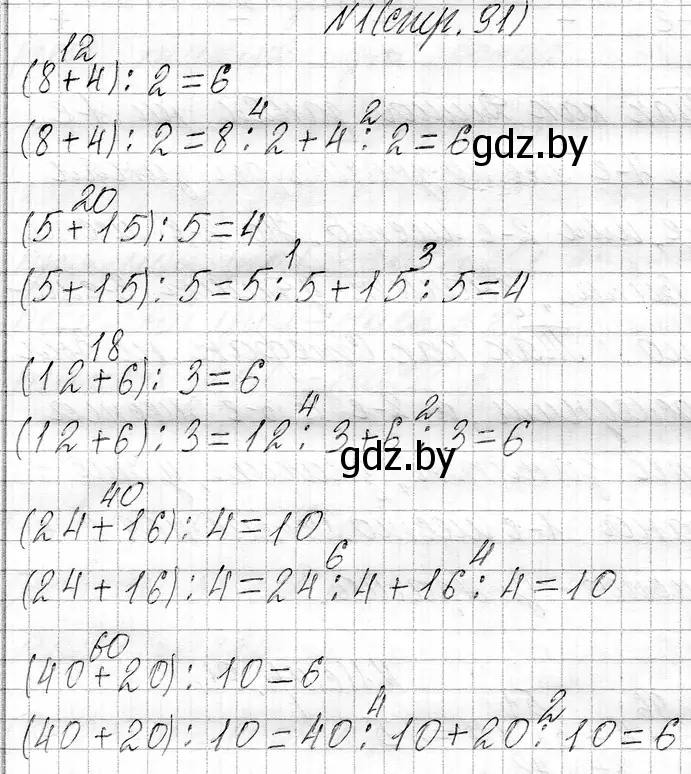 N1(стр. 91)
12
(8+4): 2=6
4 2
(8+4): 2=8:2+4:2=6
gdz.by
20
(5+15):5=4
1 3
(5+15): 5=5:5+15:5=4
18
(12+6): 3=6
4 2
(12+6): 3=12:3+6:3=6
gdz.by
40
(24+16): 4=10
6 4
(24+16): 4=24:4+16:4=10
60
(40+20): 10=6
4 2
(40+20): 10=40:10+20:10=6